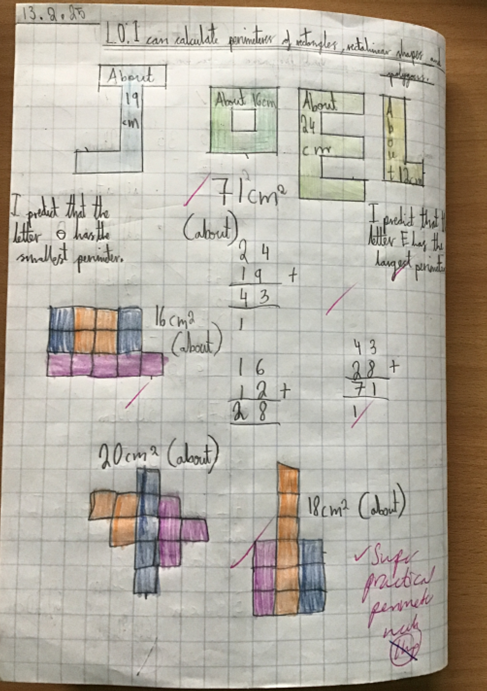 13.2.25
L.O. I can calculate perimeters of rectangles, rectilinear shapes and
polygons.
About
19
cm
About 16cm
About
24
cm
A
b
o
u
t 12cm
71cm²
(about)
I predict that the
letter O has the
smallest perimeter.
I predict that
letter E has the
largest perimeter
2 4
1 9 +
4 3
1
16cm²
(about)
1 6
1 2 +
2 8
4 3
2 8 +
7 1
1
20cm² (about)
18cm² (about)
✓ Super
practical
perimeter